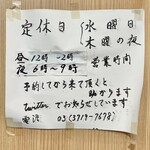 定休日 { 水曜日
木曜の夜
営業時間
昼 12時 - 2時
夜 6時〜9時
予約してから来て頂くと
助かります
twitterでお知らせしています
電話 03(3719-7678)